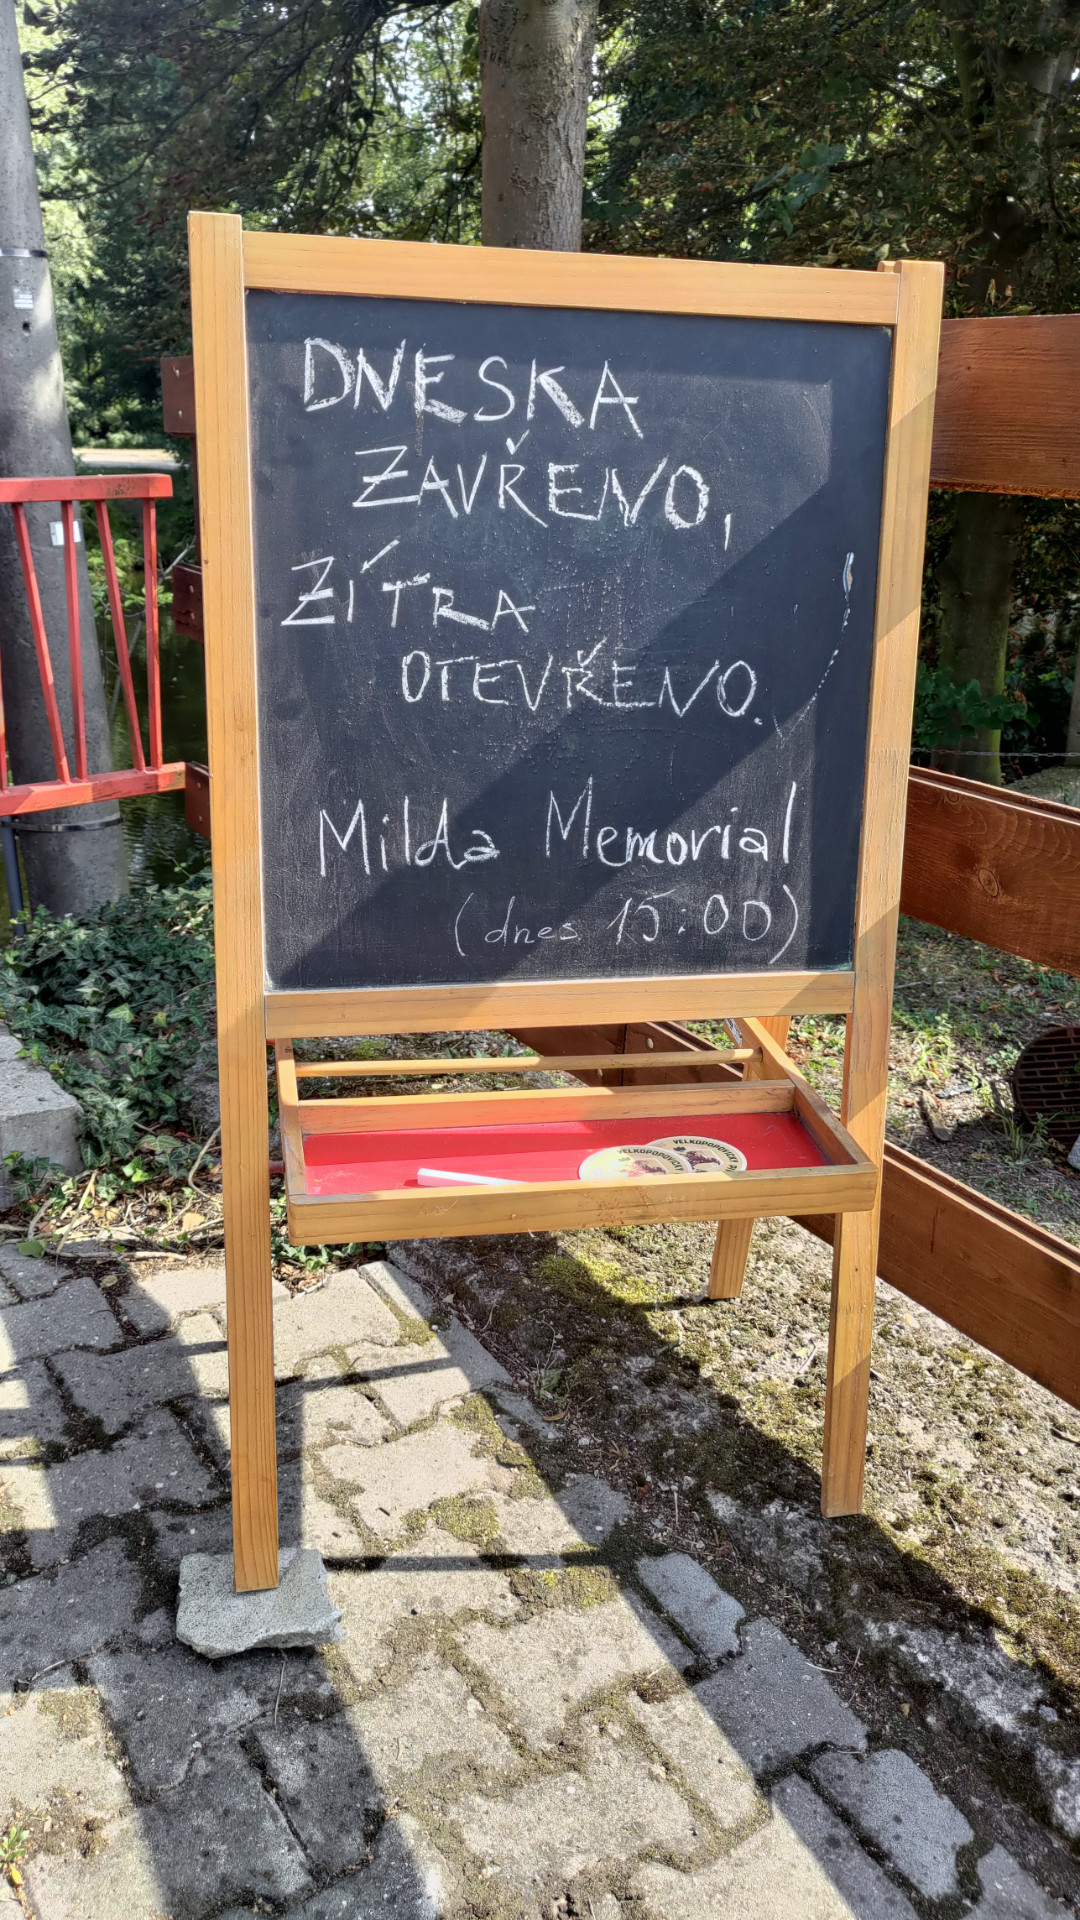 DNESKA
ZAVŘENO,
ZÍTRA
OTEVŘENO.
Milda Memorial
(dnes 15:00)
VELKOPOPOVICKÝ
VELKOPOPOVICKÝ